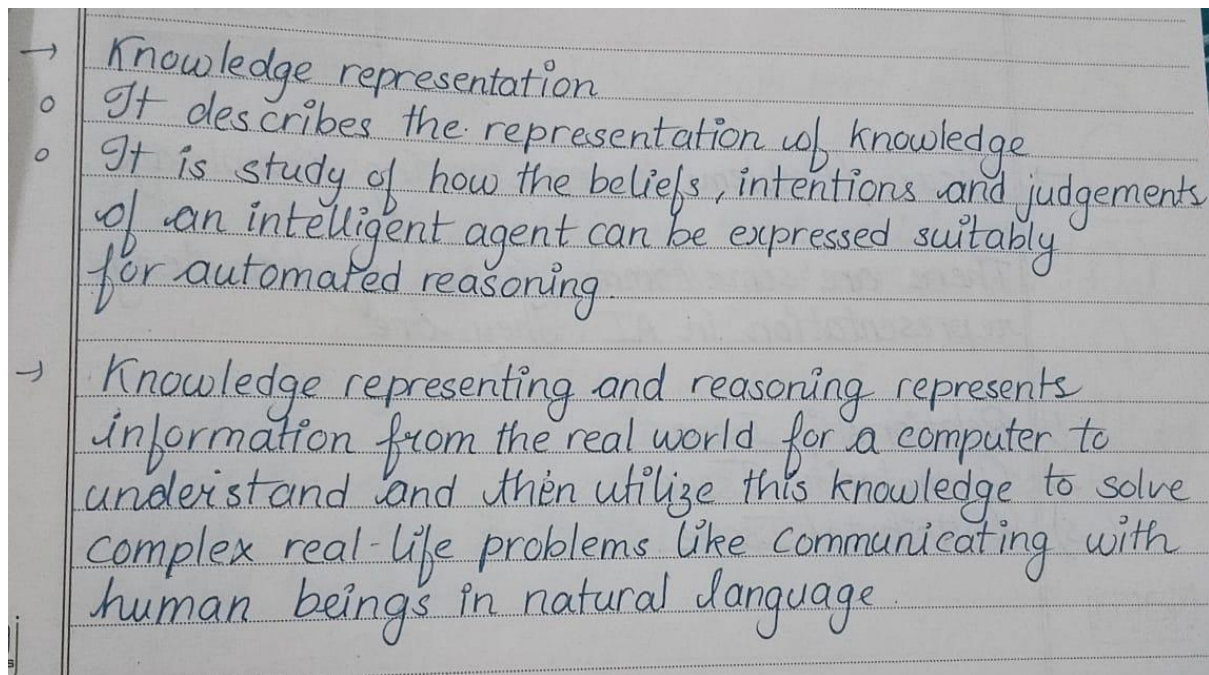 → Knowledge representation
○ It describes the representation of knowledge
○ It is study of how the beliefs, intentions and judgements
of an intelligent agent can be expressed suitably
for automated reasoning.
→ Knowledge representing and reasoning represents
information from the real world for a computer to
understand and then utilize this knowledge to solve
complex real-life problems like communicating with
human beings in natural language.